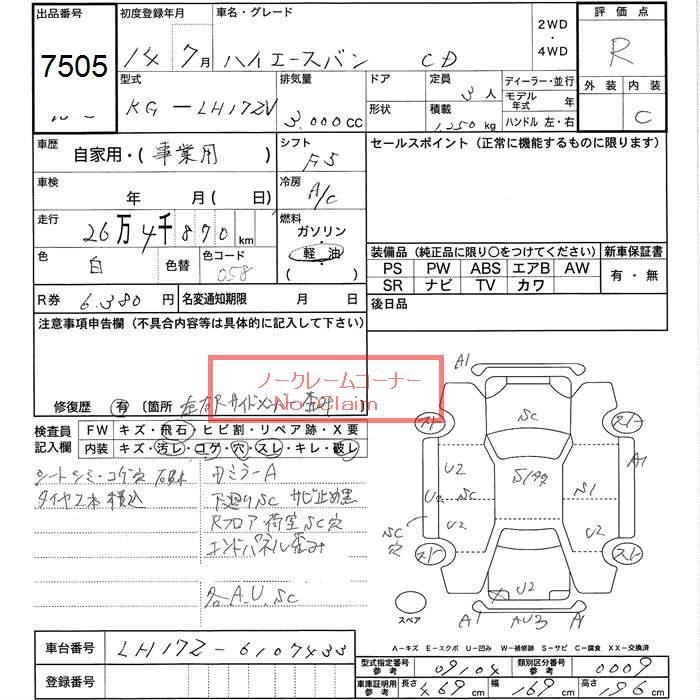 出品番号 初度登録年月 車名・グレード 評価点
7505 14年 7月 ハイエースバン CD 2WD・4WD R
型式 排気量 ドア 定員 ディーラー・並行 外装 内装
KG-LH172V 3.000CC 3人 モデル年式 年 C
形状 積載 1,250kg ハンドル 左・右
車歴 自家用・(事業用) シフト F5 セールスポイント (正常に機能するものに限ります)
車検 年 月(日) 冷房 A/C
走行 26万4千870km 燃料 ガソリン 軽油 ( )
装備品 (純正品に限り○をつけてください) 新車保証書
色 白 色替 色コード 058
PS PW ABS エアB AW 有・無
SR ナビ TV カワ
R券 6.380円 名変通知期限 月 日 後日品
注意事項申告欄 (不具合内容等は具体的に記入して下さい)
ノークレームコーナー
No Claim
修復歴 有 〔箇所
検査員記入欄 FW キズ・飛石・ヒビ割・リペア跡・X要
内装 キズ・汚レ・コゲ・穴・スレ・キレ・破レ
シートシミ・コゲ穴
タイヤ2本積込
ミラーA
下廻りSC サビ止め黒
Rフロア・荷室SC穴
エンドパネル歪み
各A.U.SC
A1
SC
スレ スレ
A1
U2 U2 SC S1 U2 U2
SC穴
スレ スレ
X U2
スペア A1 AU3 A1
A-キズ E-エクボ U-凹み W-補修跡 S-サビ C-腐食 XX-交換済
車台番号 LH172-6107433
型式指定番号 参考 09104 類別区分番号 参考 0009
登録番号
車庫証明用 参考 長さ 469cm 幅 169cm 高さ 196cm